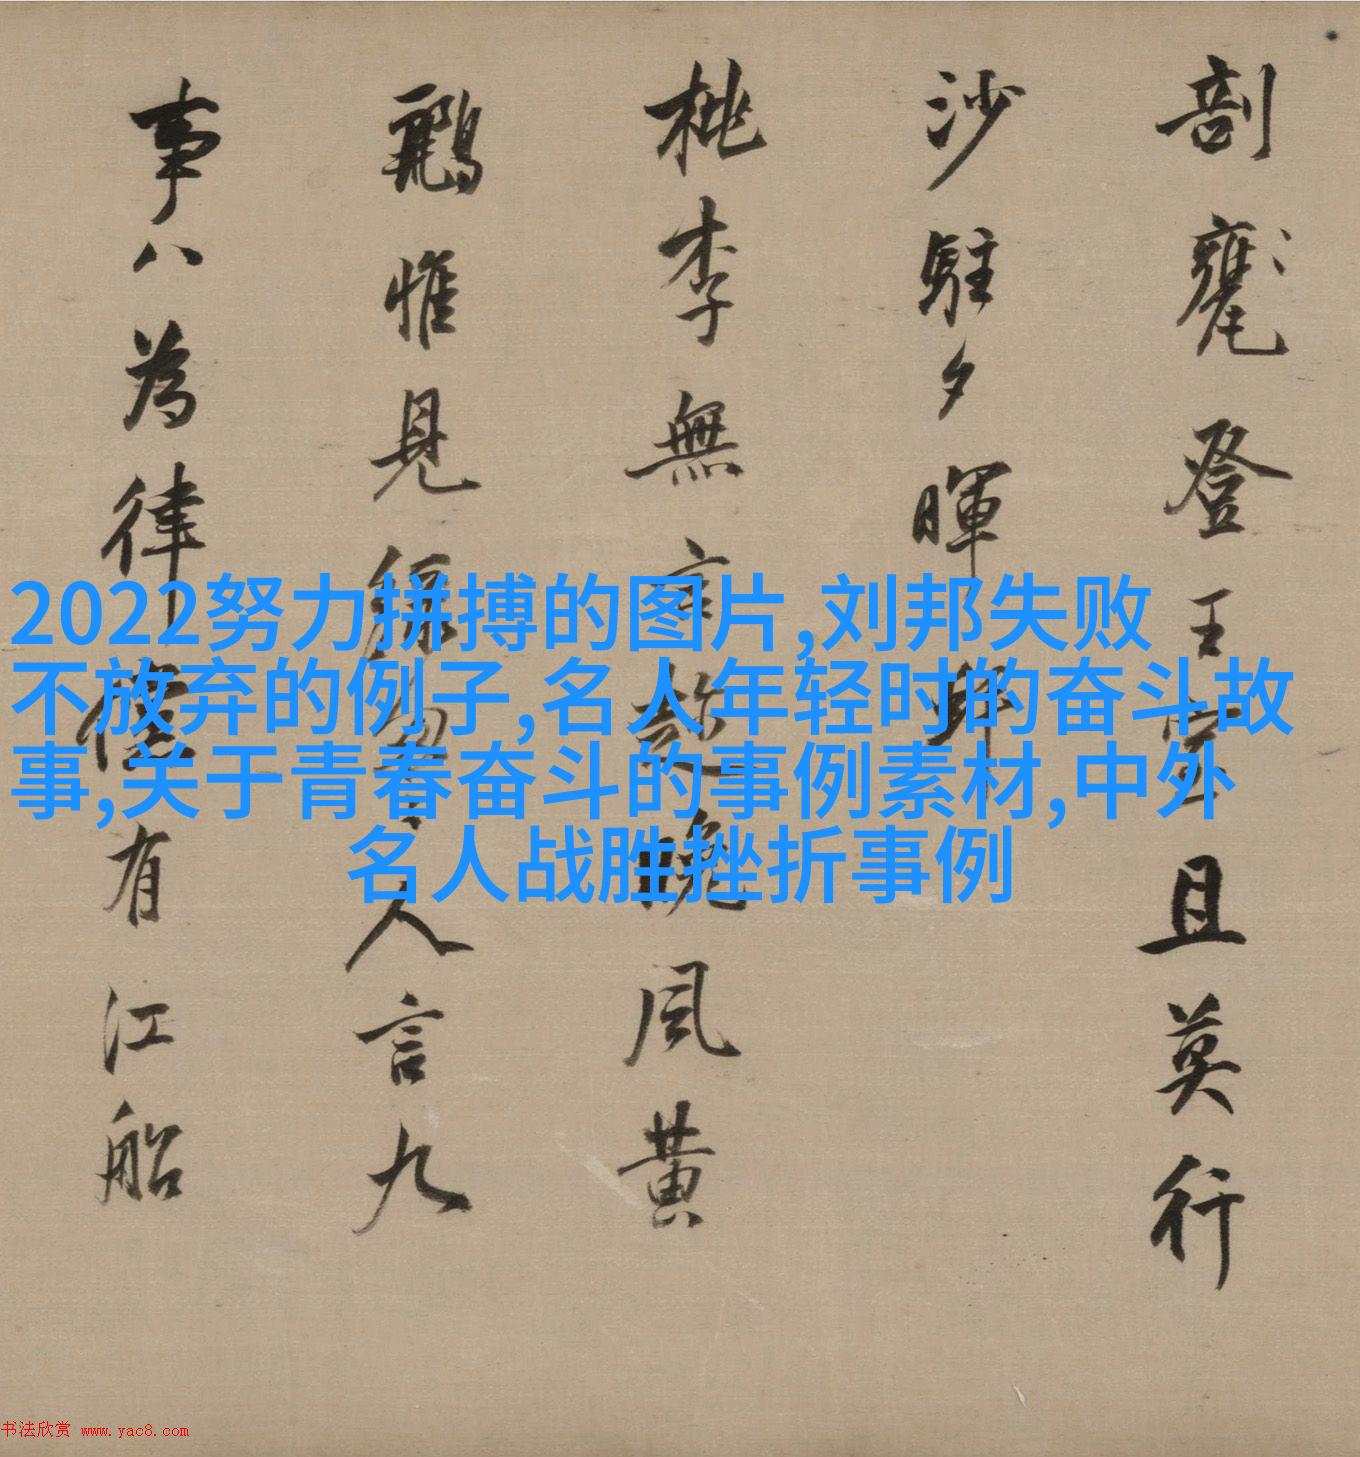 剖甕登王且莫行
沙駐夕暉
桃李無言晚風黃
鸝惟見綠匆匆人言九
事八為律儻有江船
2022努力拼搏的图片,刘邦失败
不放弃的例子,名人年轻时的奋斗故
事,关于青春奋斗的事例素材,中外
名人战胜挫折事例
书法欣赏 www.yac8.com